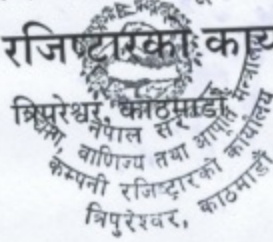 रजिष्टारको कार्य
त्रिपुरेश्वर, काठमाडौं
नेपाल सरकार
वाणिज्य तथा आपूर्ति मन्त्रालय
कम्पनी रजिष्ट्रारको कार्यालय
त्रिपुरेश्वर, काठमाडौं